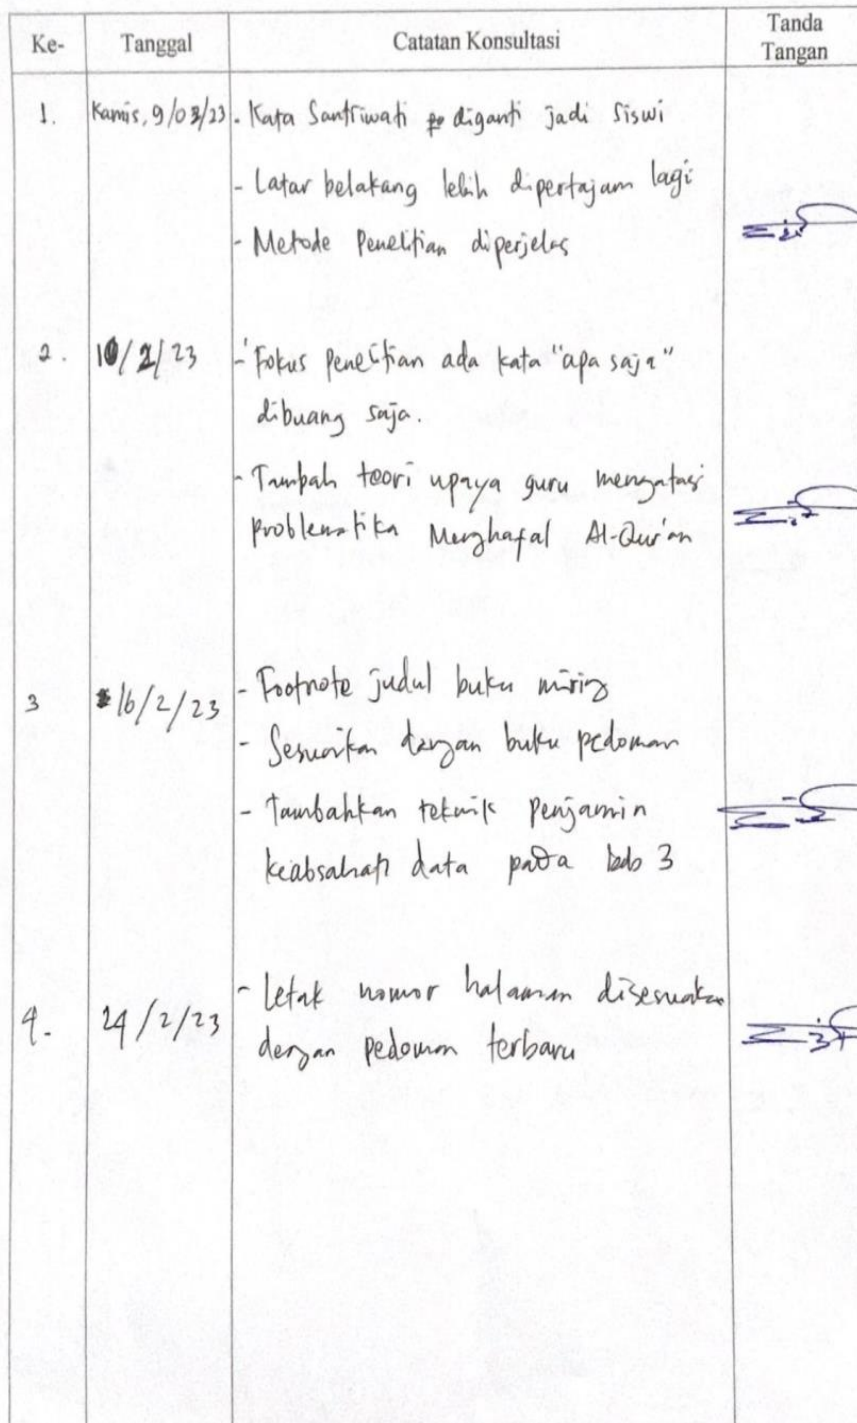 Ke- Tanggal Catatan Konsultasi Tanda Tangan
1. Kamis, 9/03/23 - Kata Santriwati diganti jadi siswi
- Latar belakang lebih dipertajam lagi
- Metode Penelitian diperjelas
2. 10/2/23 - Fokus penelitian ada kata "apa saja"
dibuang saja.
- Tambah teori upaya guru mengatasi
problematika Menghafal Al-Qur'an
3 16/2/23 - Footnote judul buku miring
- Sesuaikan dengan buku pedoman
- Tambahkan teknik Penjamin
keabsahan data pada bab 3
4. 24/2/23 - Letak nomor halaman disesuaikan
dengan pedoman terbaru